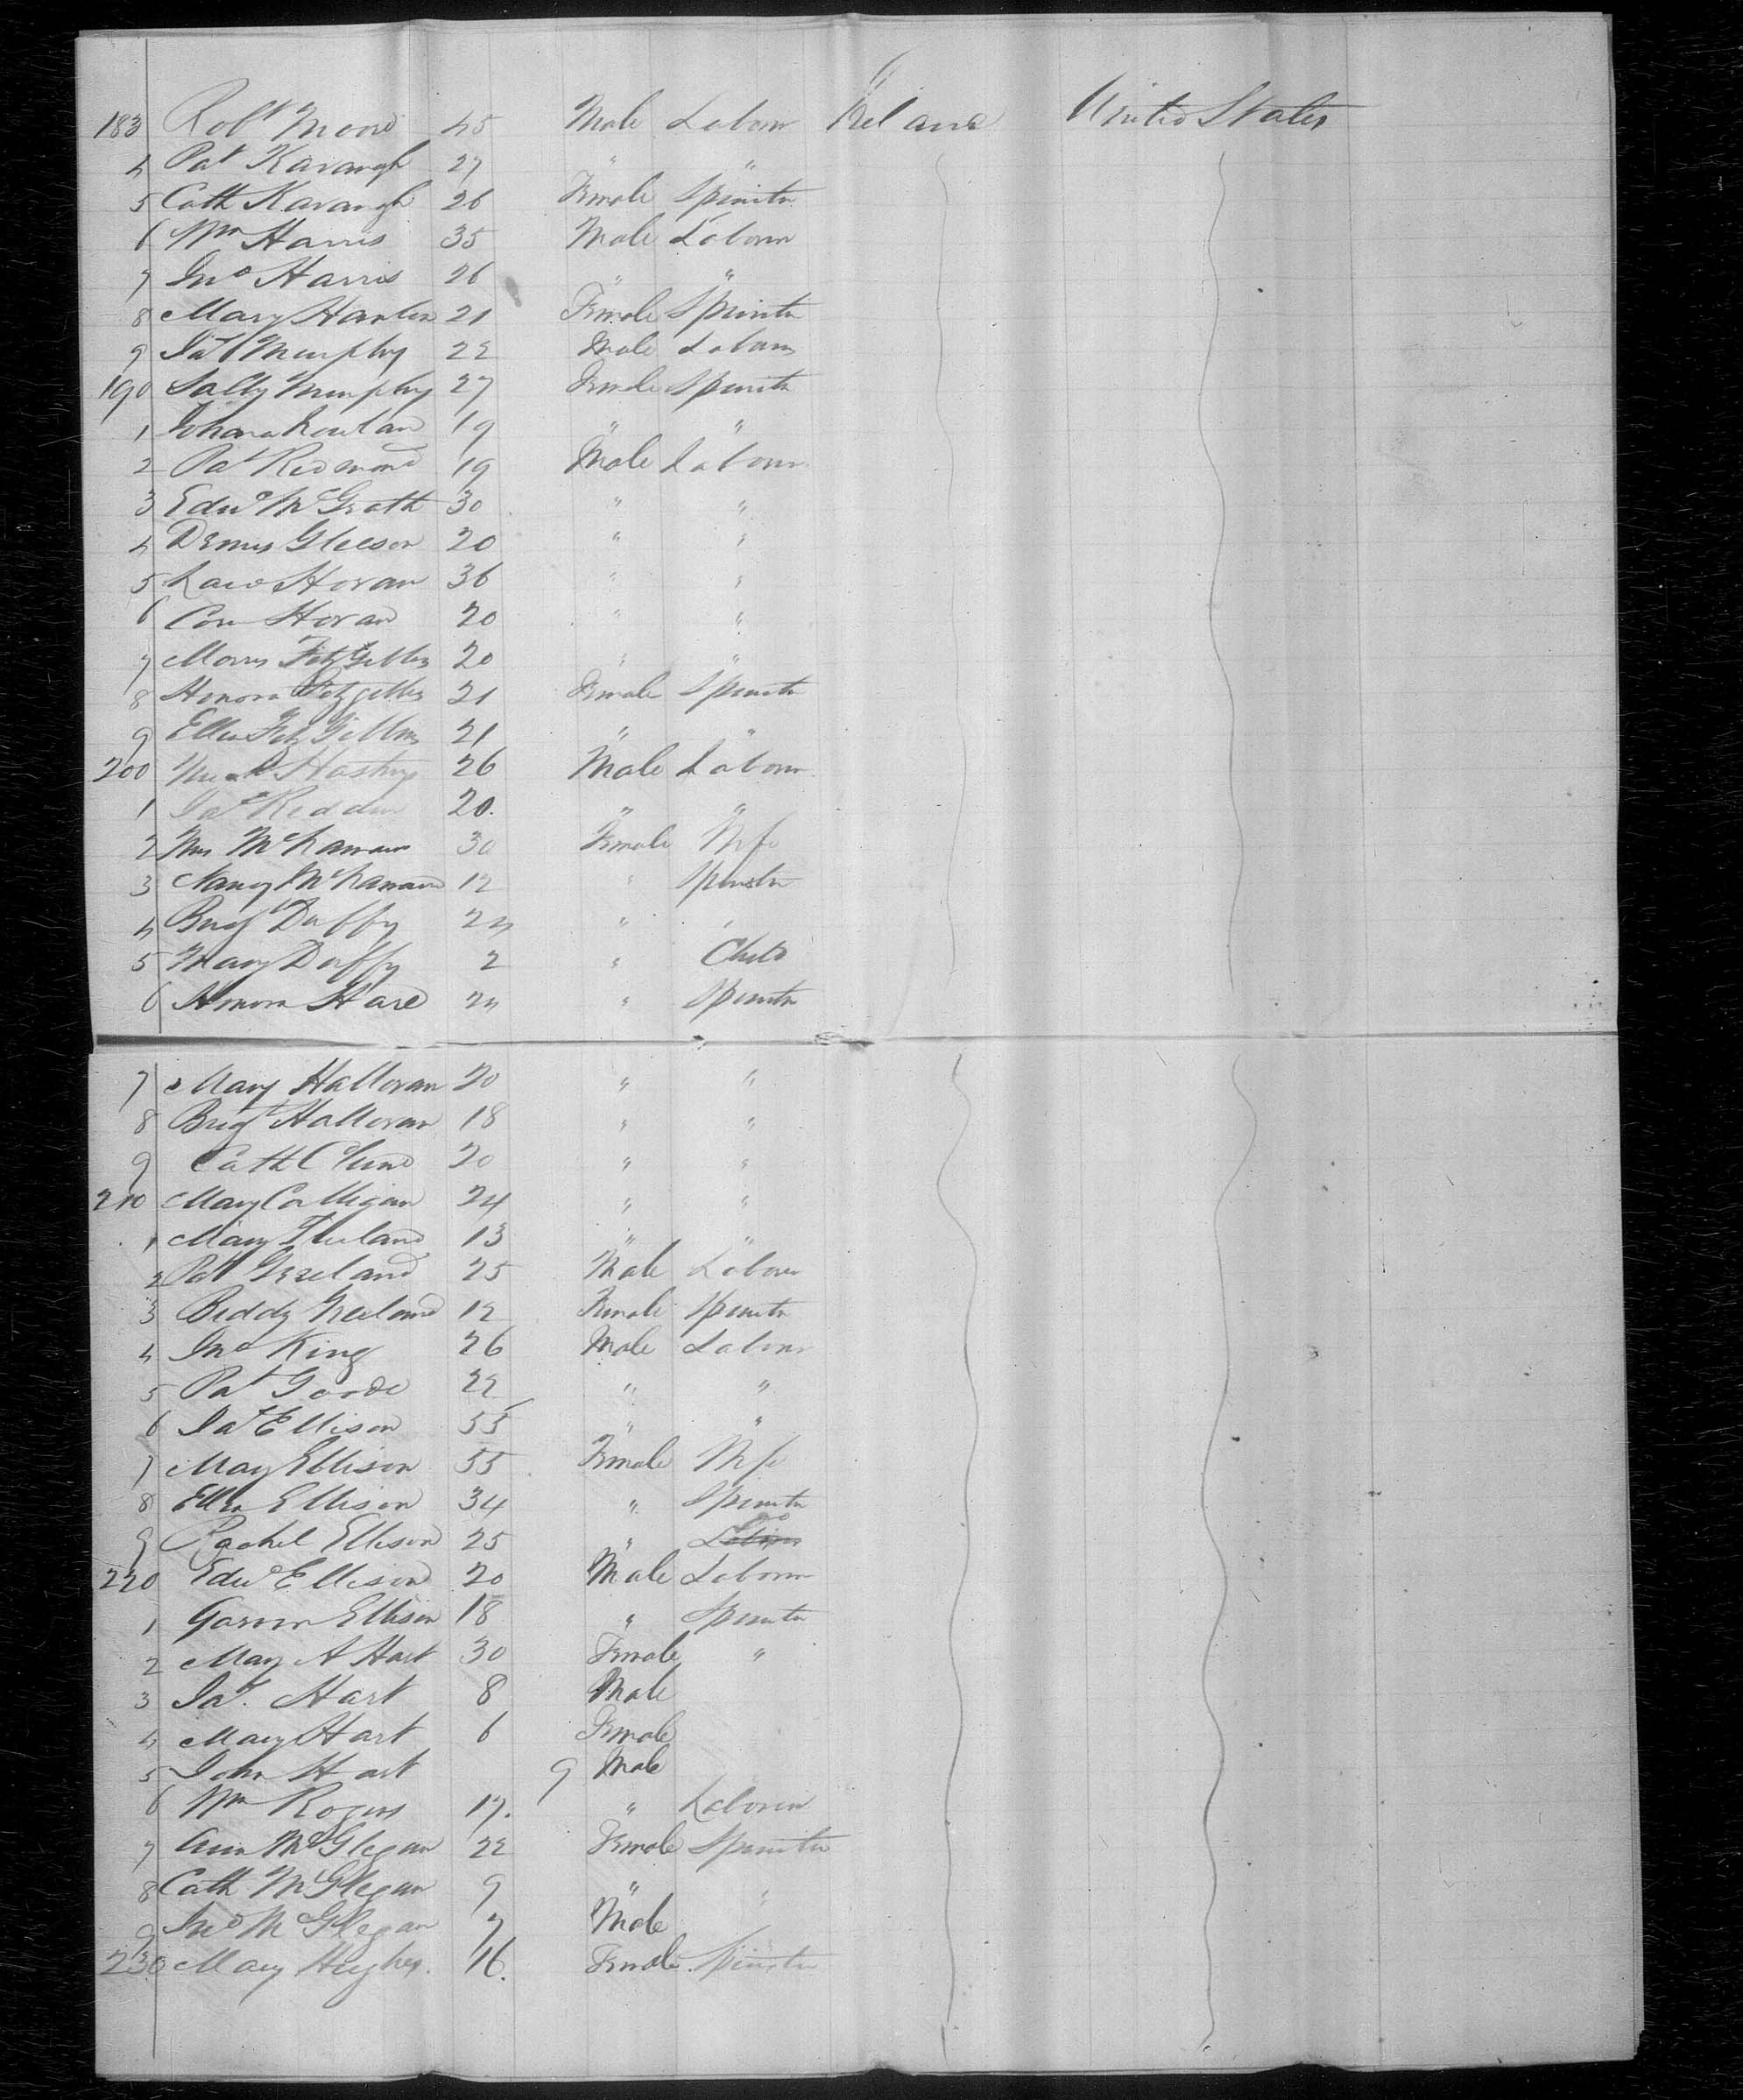 183 Robt Moore 45 Male Labour Ireland United States
4 Pat Kavangh 27 " "
5 Cath Kavangh 26 Female Spinstr
6 Wm Harris 35 Male Labour
7 Jno Harris 26 " "
8 Mary Hanlon 21 Female Spinstr
9 Jas Murphy 22 Male Labour
190 Sally Murphy 27 Female Spinstr
1 Johana 19 " "
2 Pat Redmond 19 Male Labour
3 Edwd McGrath 30 " "
4 Dennis Gleeson 20 " "
5 Lawe Horan 36 " "
6 Con Horan 20 " "
7 Morris FitzGibbs 20 " "
8 Honora Fitzgibbs 21 Female Spinstr
9 Ellen FitzGibbins 21 " "
200 Hastings 26 Male Labour
1 Pat Reddin 20. " "
2 Mrs 30 Female Wife
3 Nancy 12 " Spinstr
4 Brigt Duffy 24 " "
5 Mary Duffy 2 " Child
6 Honora Hare 24 " Spinstr
7 Mary Halloran 20 " "
8 Brigt Halloran 18 " "
9 Cath Clune 20 " "
210 Mary Colligan 24 " "
1 Mary 13 " "
2 Pat Greeland 25 Male Labour
3 Biddy Greeland 12 Female Spinstr
4 Jno King 26 Male Labour
5 Pat Goode 22 " "
6 Jas Ellison 55 " "
7 Mary Ellison 55 Female Wife
8 Ellen Ellison 34 " Spinstr
9 Rachel Ellison 25 " Labour
220 Edwd Ellison 20 Male Labour
1 Ellison 18 " Spinstr
2 Mary A Hart 30 Female "
3 Jas. Hart 8 Male
4 Mary Hart 6 Female
5 John Hart 9 Male
6 Wm Rogers 17. " Labourer
7 Ann McGlegan 22 Female Spinstr
8 Cath McGlegan 9 " "
9 Jno McGlegan 7 Male
230 Mary Hughes. 16. Female Spinstr